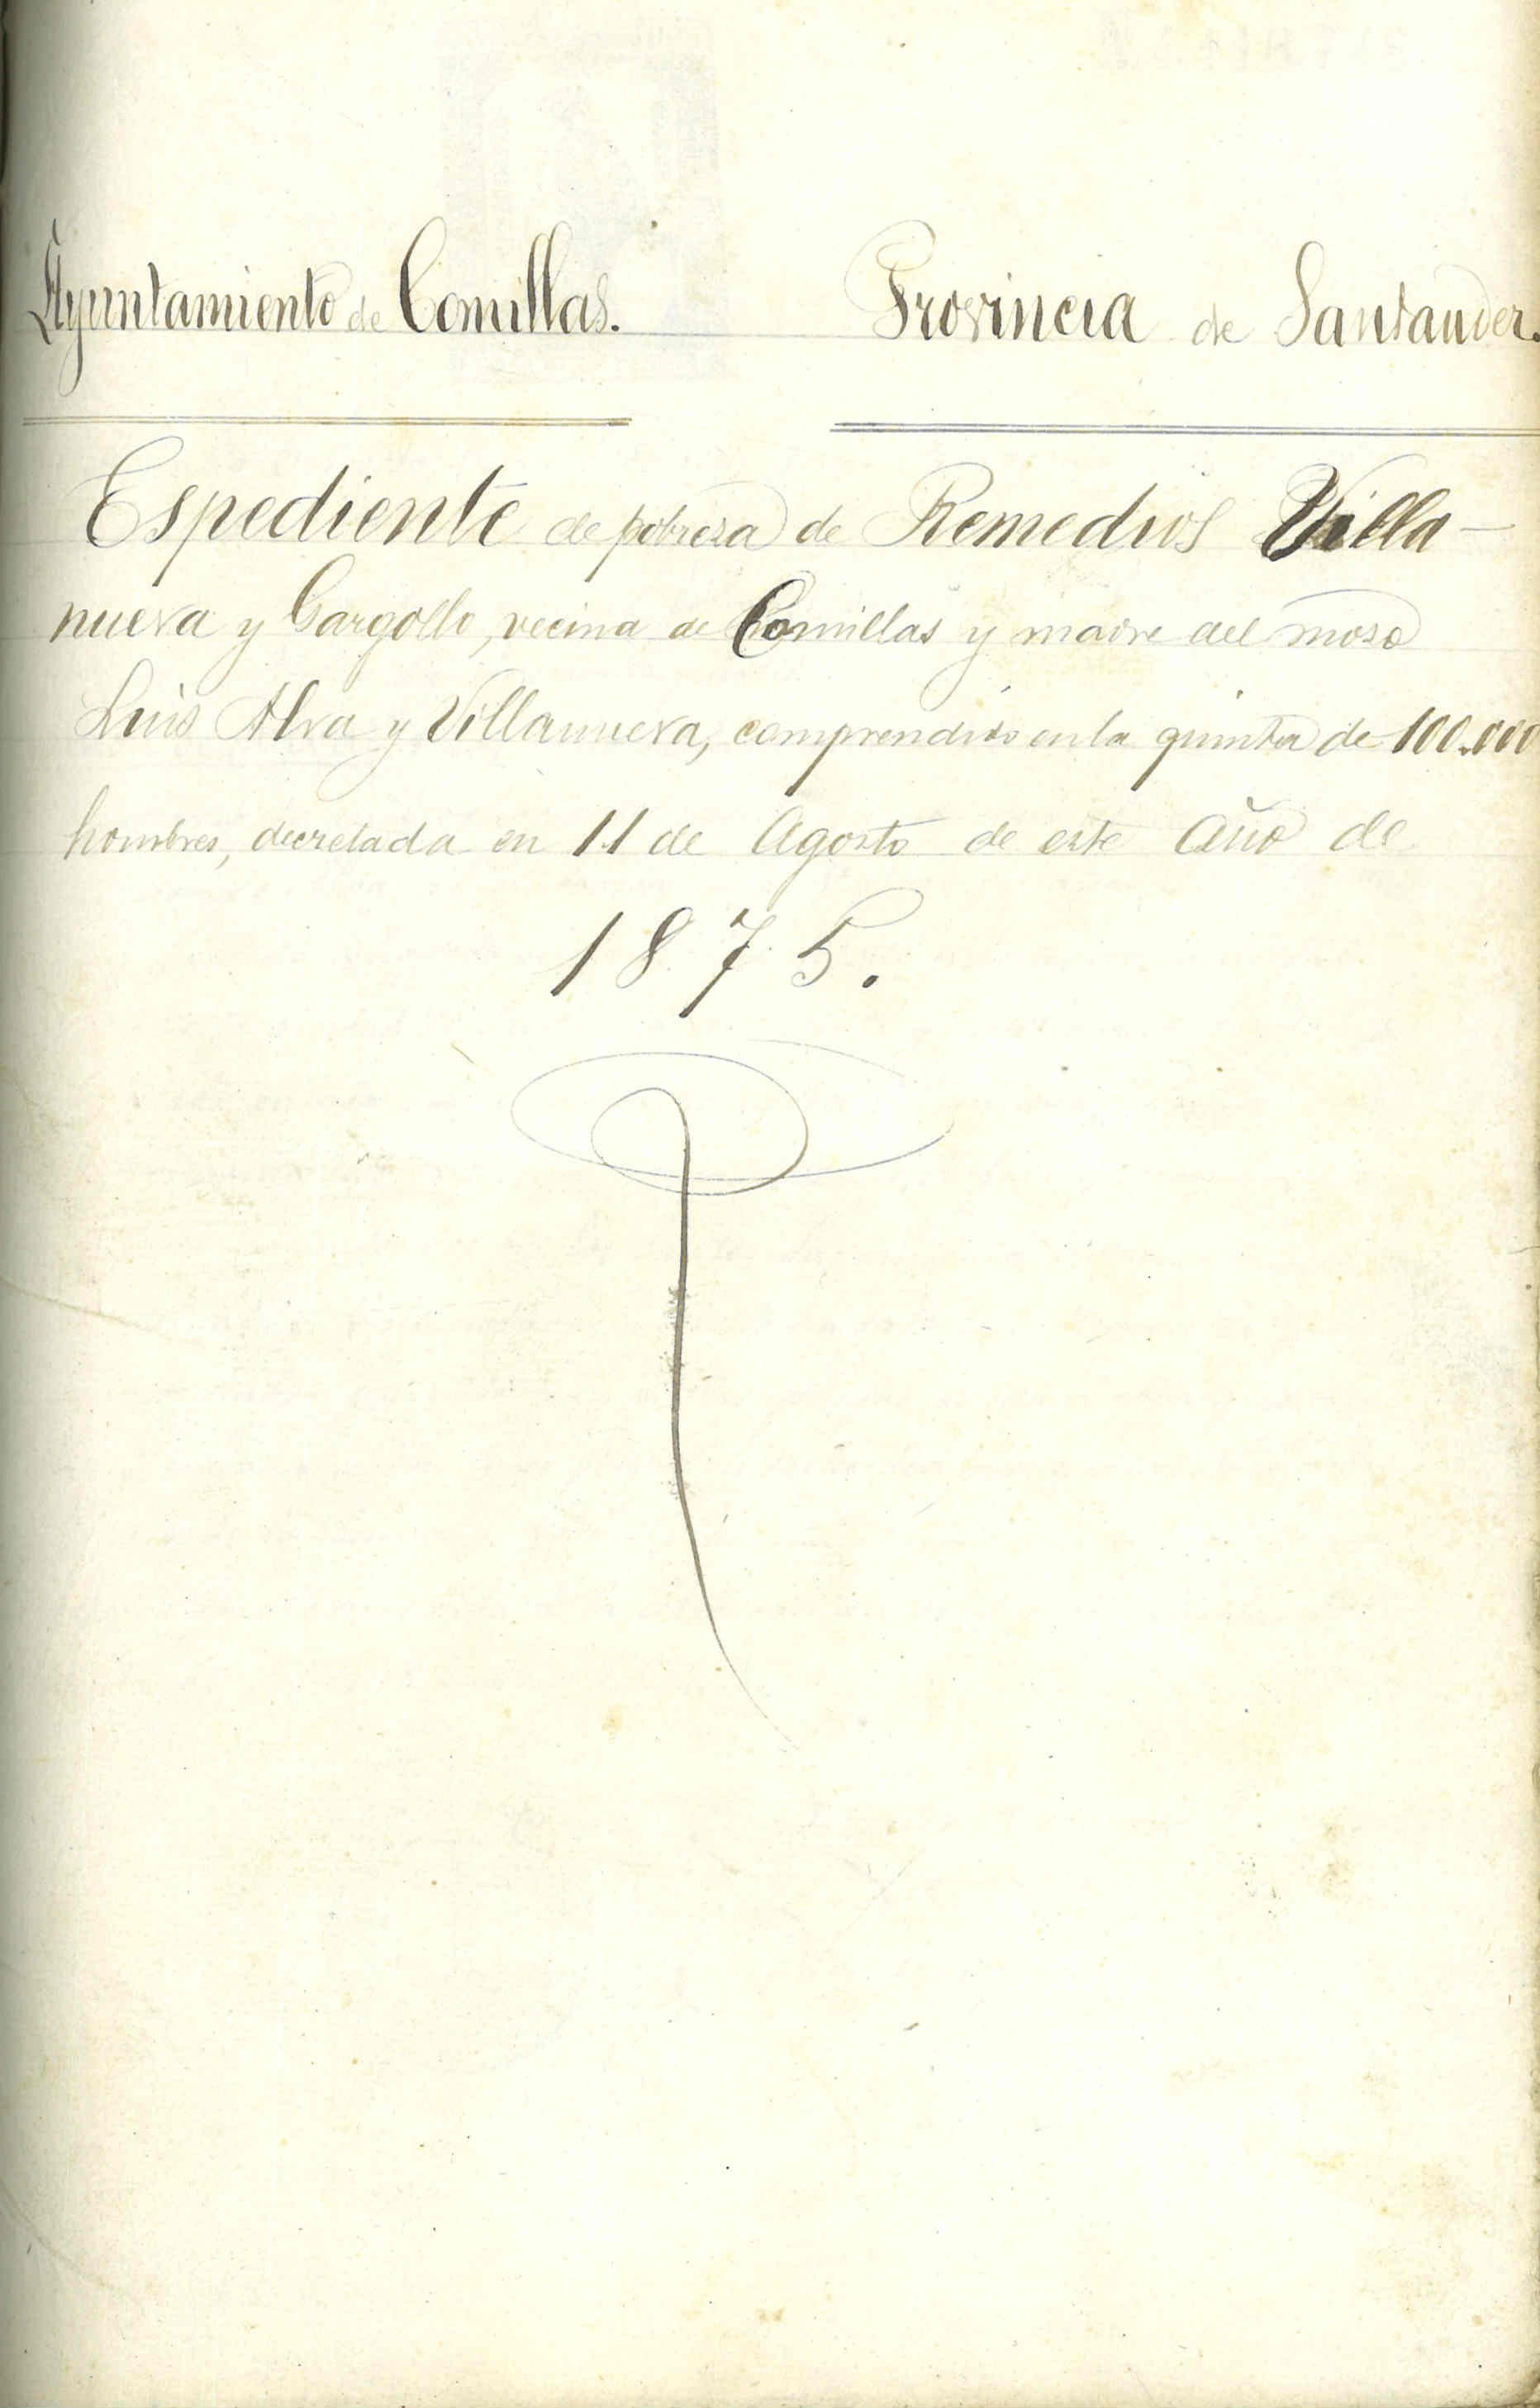 Ayuntamiento de Comillas. Provincia de Santander.
Espediente de pobreza de Remedios Villa-
nueva y Gargollo, vecina de Comillas y madre del moso
Luis Alva y Villanueva, comprendido en la quinta de 100.000
hombres, decretada en 11 de Agosto de este Año de
1875.